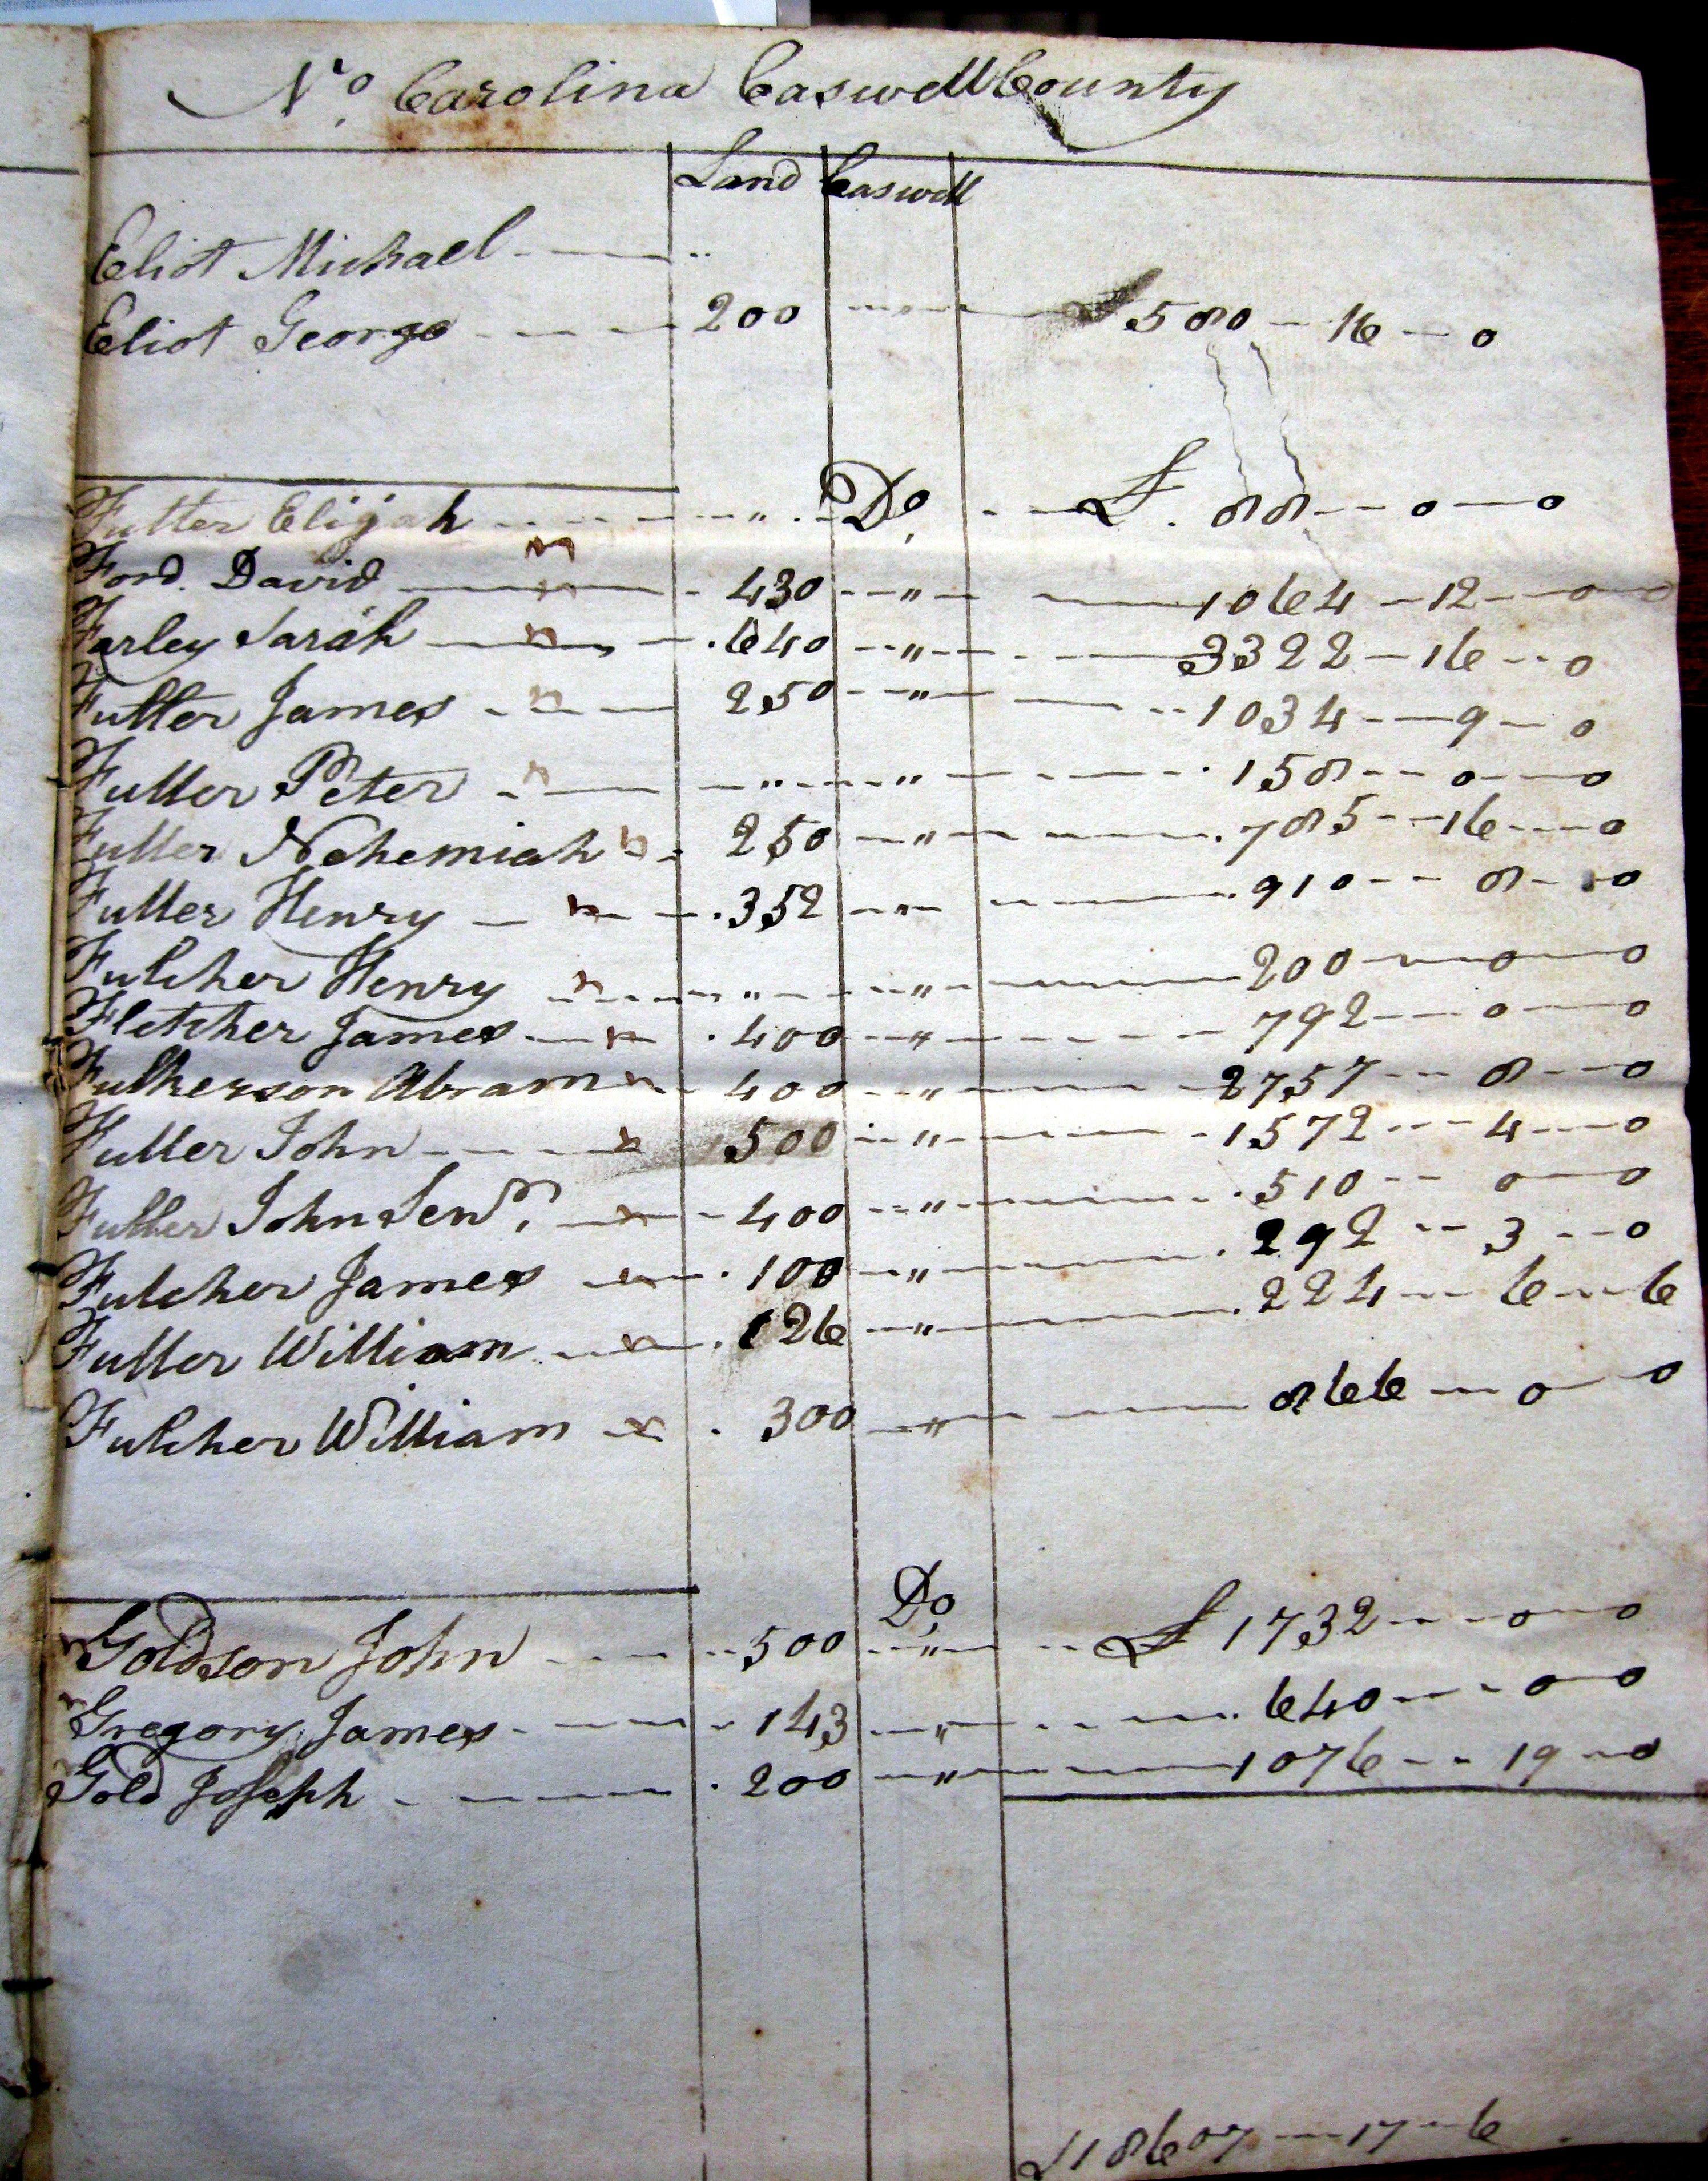 No. Carolina Caswell County
Land Caswell
Eliot Michael - - - "
Eliot George - - - 200 - - - £ 580 - 16 - 0
Fuller Elijah - - - " - Do. - - £. 88 - 0 - 0
Ford. David - n - 430 - " - 1064 - 12 - 0
Farley Sarah - n - 640 - " - 3322 - 16 - 0
Fuller James - n - 250 - " - 1034 - 9 - 0
Fuller Peter - n - " - " - 158 - 0 - 0
Fuller Nehemiah n - 250 - " - 785 - 16 - 0
Fuller Henry - n - 352 - " - 910 - 8 - 0
Fulcher Henry n - " - " - 200 - 0 - 0
Fletcher James - n - 400 - " - 792 - 0 - 0
Fulkerson Abram n - 400 - " - 2757 - 8 - 0
Fuller John - n - 500 - " - 1572 - 4 - 0
Fuller John Senr. - n - 400 - " - 510 - 0 - 0
Fulcher James - n - 100 - " - 292 - 3 - 0
Fuller William - n - 126 - " - 224 - 6 - 6
Fulcher William n - 300 - " - 866 - 0 - 0
Do
n Goldson John - - - 500 - " - £ 1732 - 0 - 0
n Gregory James - - - 143 - " - 640 - 0 - 0
n Gold Joseph - - - 200 - " - 1076 - 19 - 0
£18607 - 17 - 6